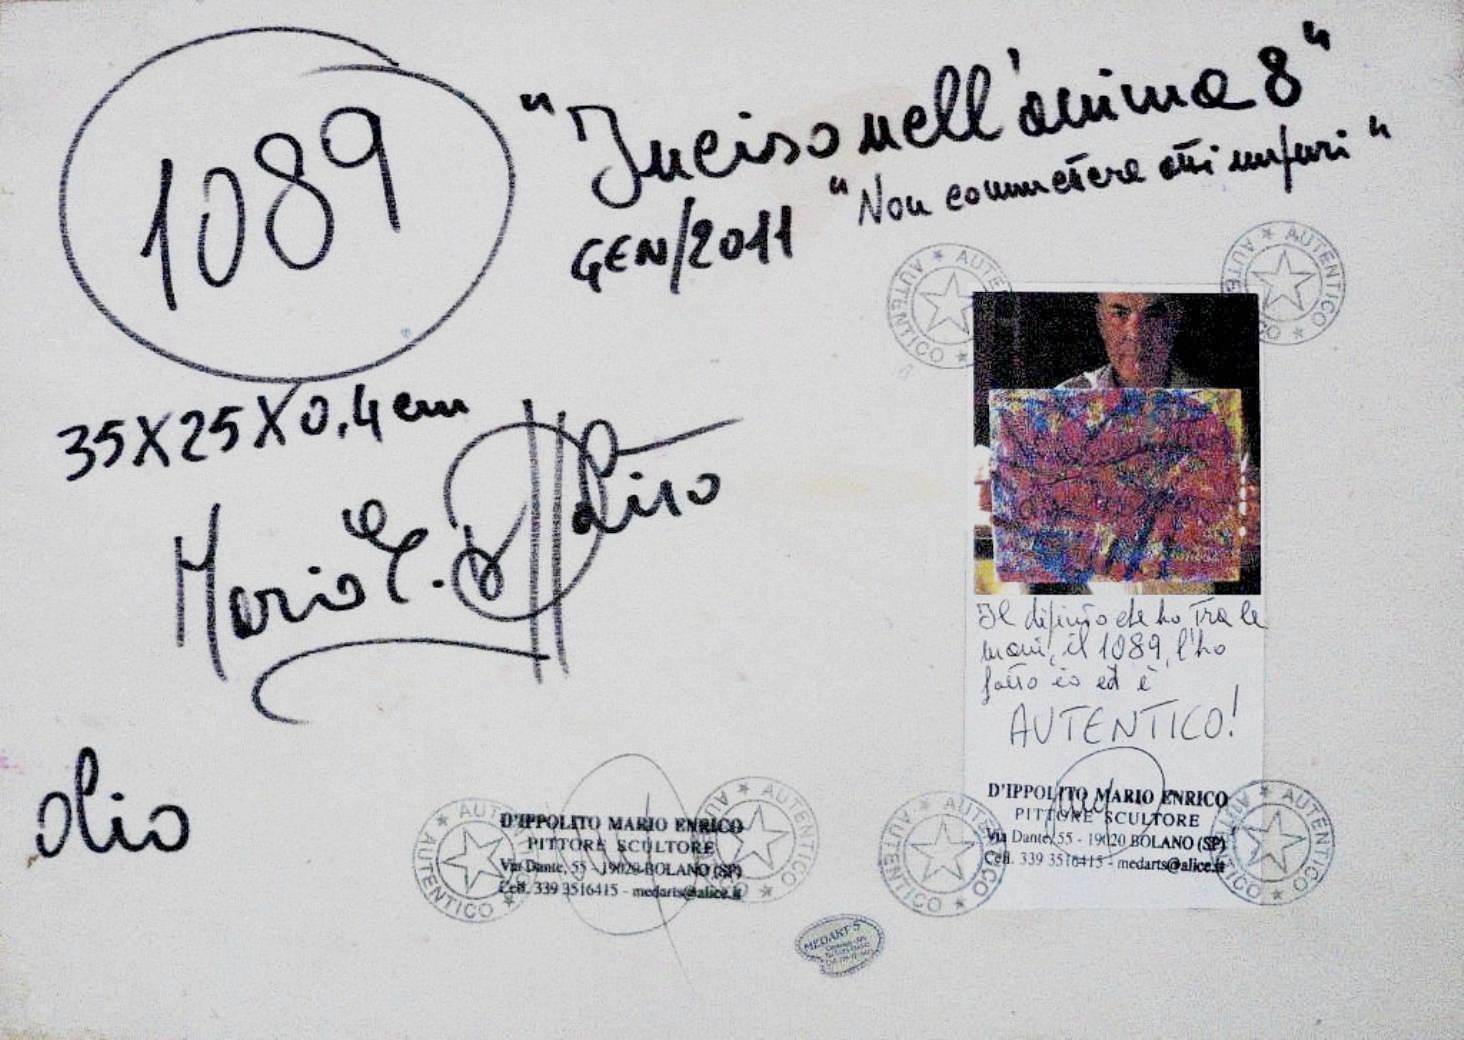 1089
"Inciso nell'anima 8"
GEN/2011 "Non commettere atti impuri"
35X25X0,4 cm
Mario E. D'Ippolito
olio
AUTENTICO ★ AUTENTICO ★
AUTENTICO ★ AUTENTICO ★
Il dipinto che ho tra le
mani, il 1089, l'ho
fatto io ed è
AUTENTICO!
D'IPPOLITO MARIO ENRICO
PITTORE SCULTORE
Via Dante, 55 - 19020 BOLANO (SP)
Cell. 339 3516415 - medarts@alice.it
AUTENTICO ★ AUTENTICO ★
AUTENTICO ★ AUTENTICO ★
D'IPPOLITO MARIO ENRICO
PITTORE SCULTORE
Via Dante, 55 - 19020 BOLANO (SP)
Cell. 339 3516415 - medarts@alice.it
AUTENTICO ★ AUTENTICO ★
AUTENTICO ★ AUTENTICO ★
MEDARTS